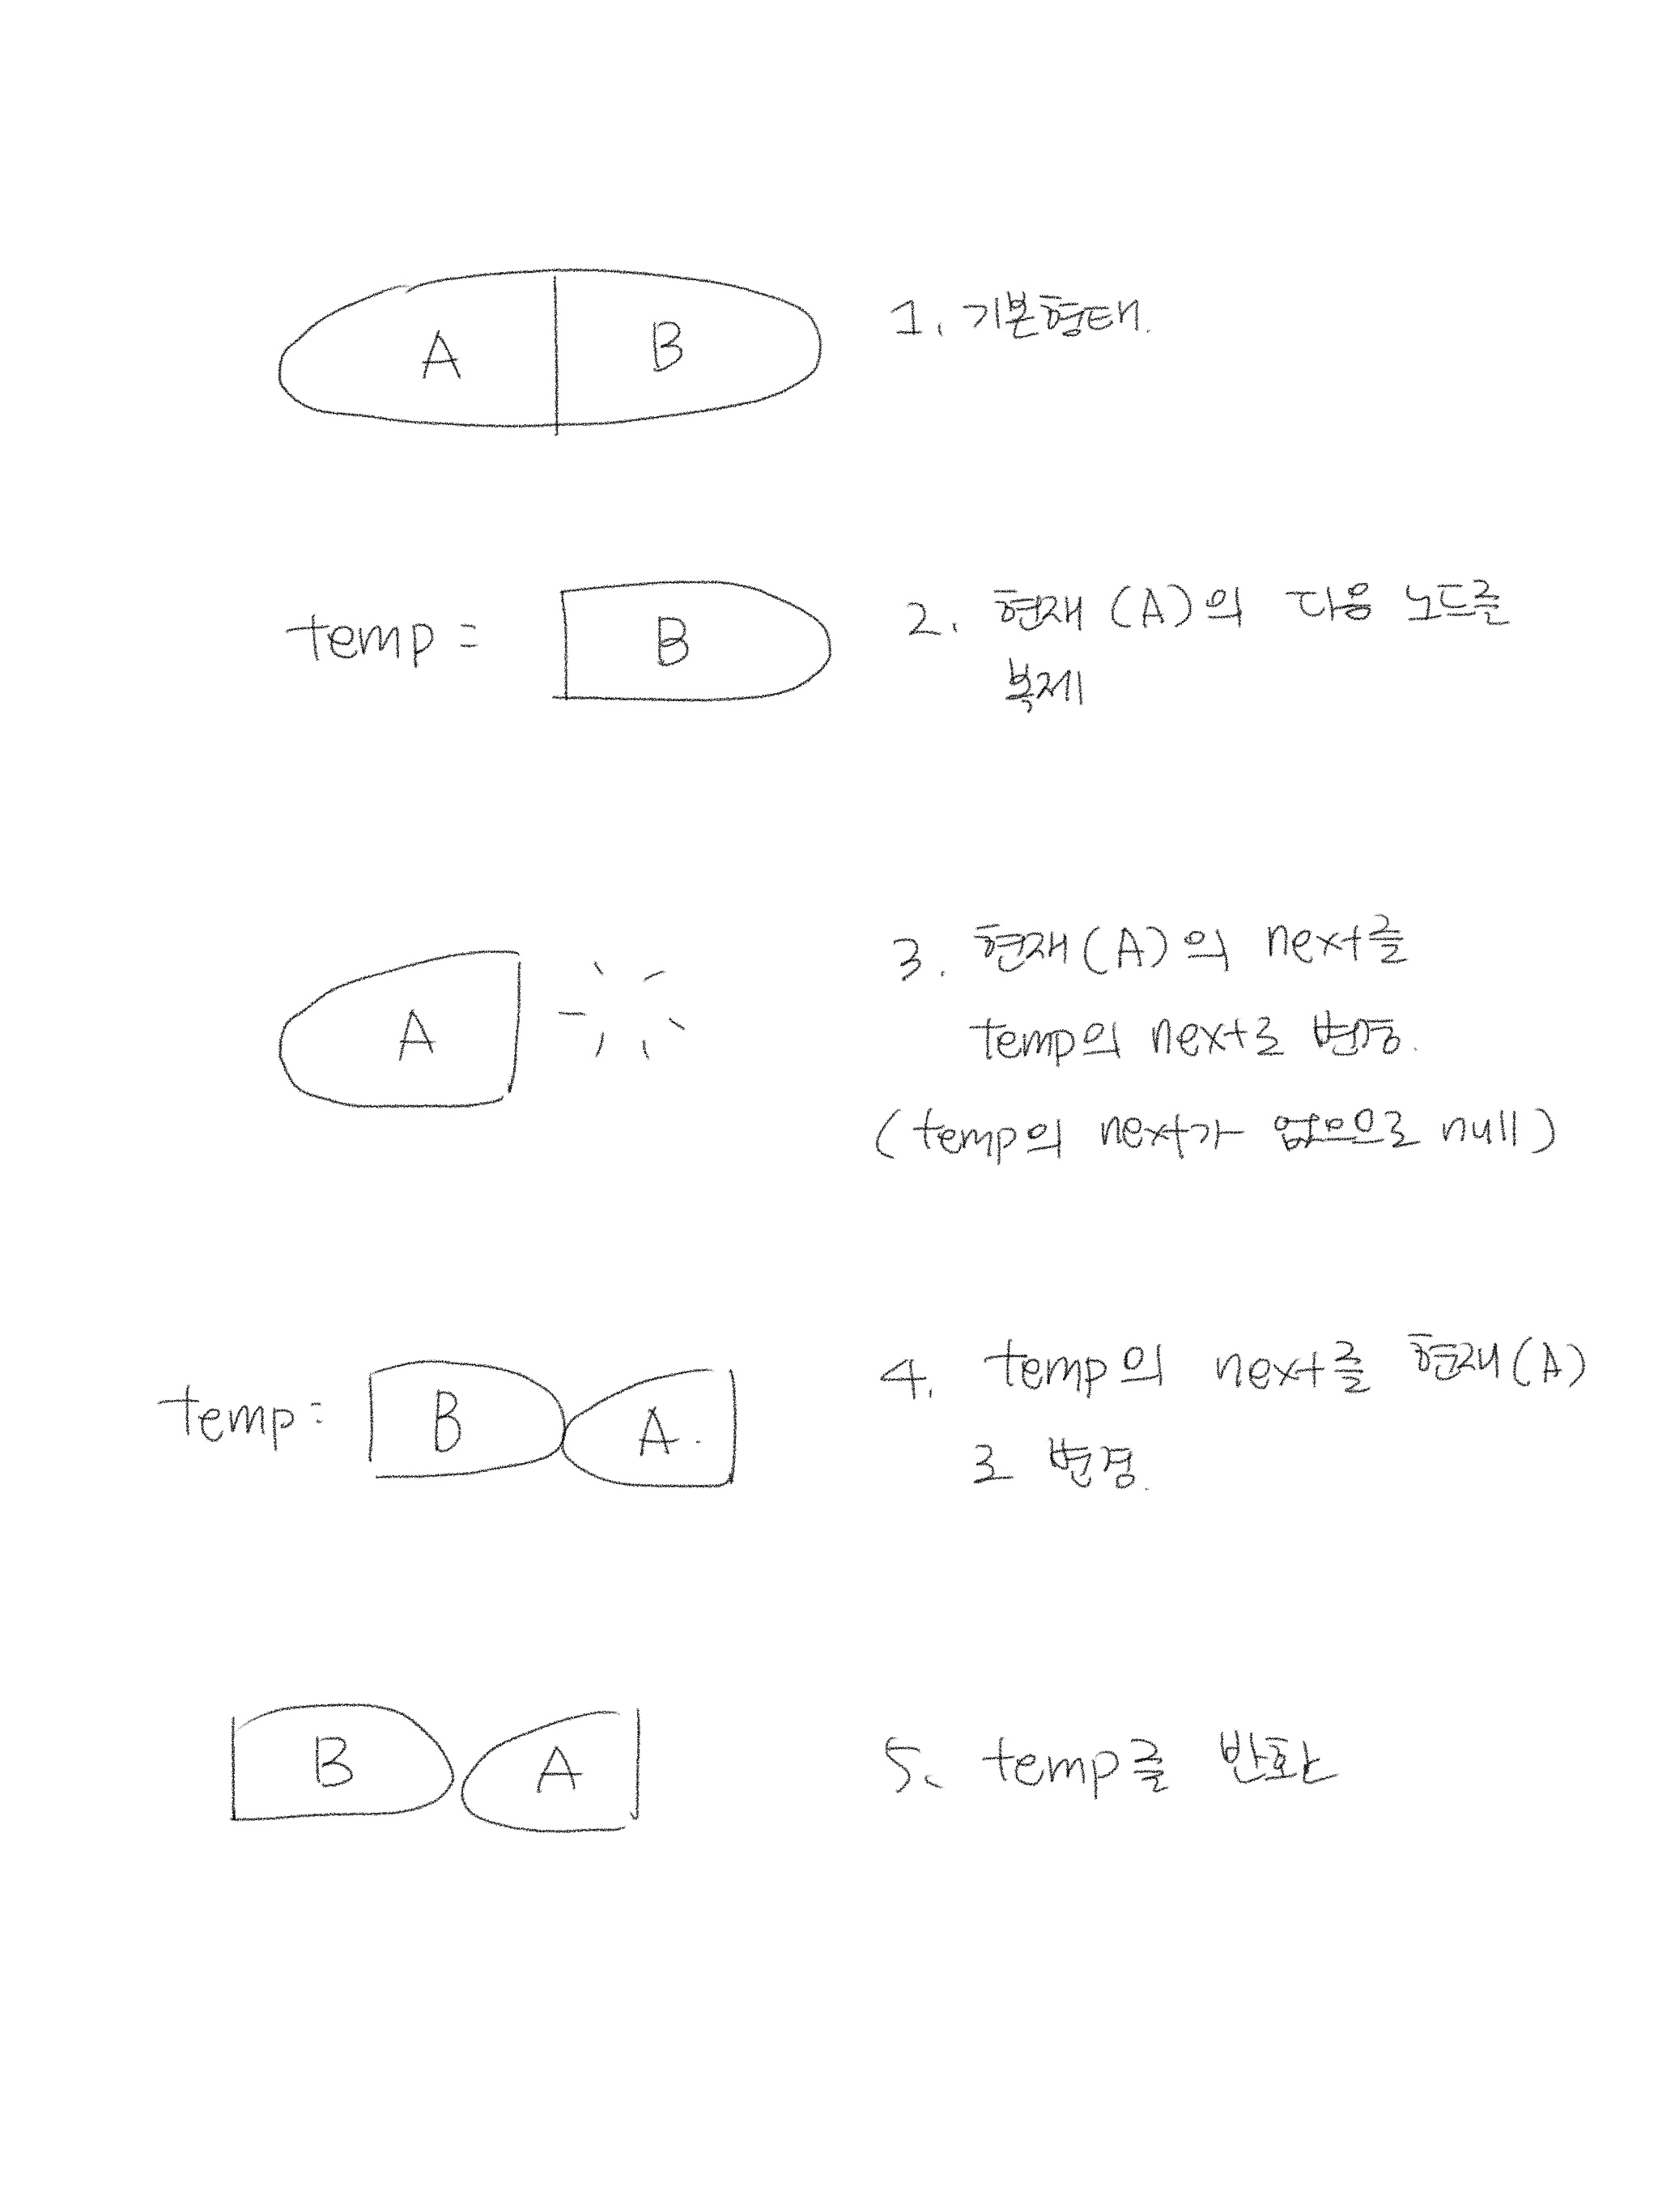 A B 1. 기본형태.
temp = B 2. 현재 (A)의 다음 노드를
복제
A 3. 현재(A)의 next를
temp의 next로 변경.
(temp의 next가 없으므로 null)
temp = B A. 4. temp의 next를 현재(A)
로 변경.
B A 5. temp를 반환